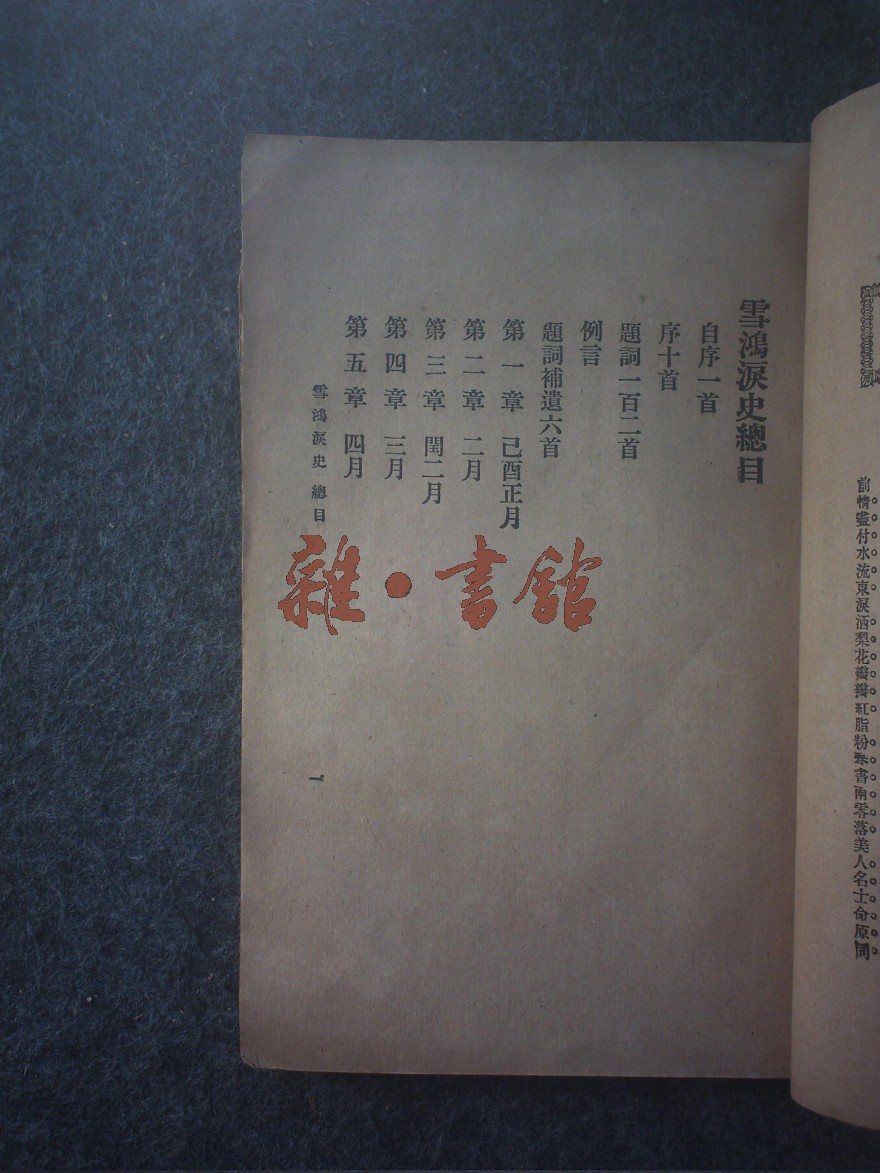 前情盡付水流東淚洒梨花瓣瓣紅脂粉琴書兩零落美人名士命原同
雪鴻淚史總目
自序一首
序十首
題詞一百二首
例言
題詞補遺六首
第一章 己酉正月
第二章 二月
第三章 閏二月
第四章 三月
第五章 四月
雪鴻淚史 總目
一
雜·書館